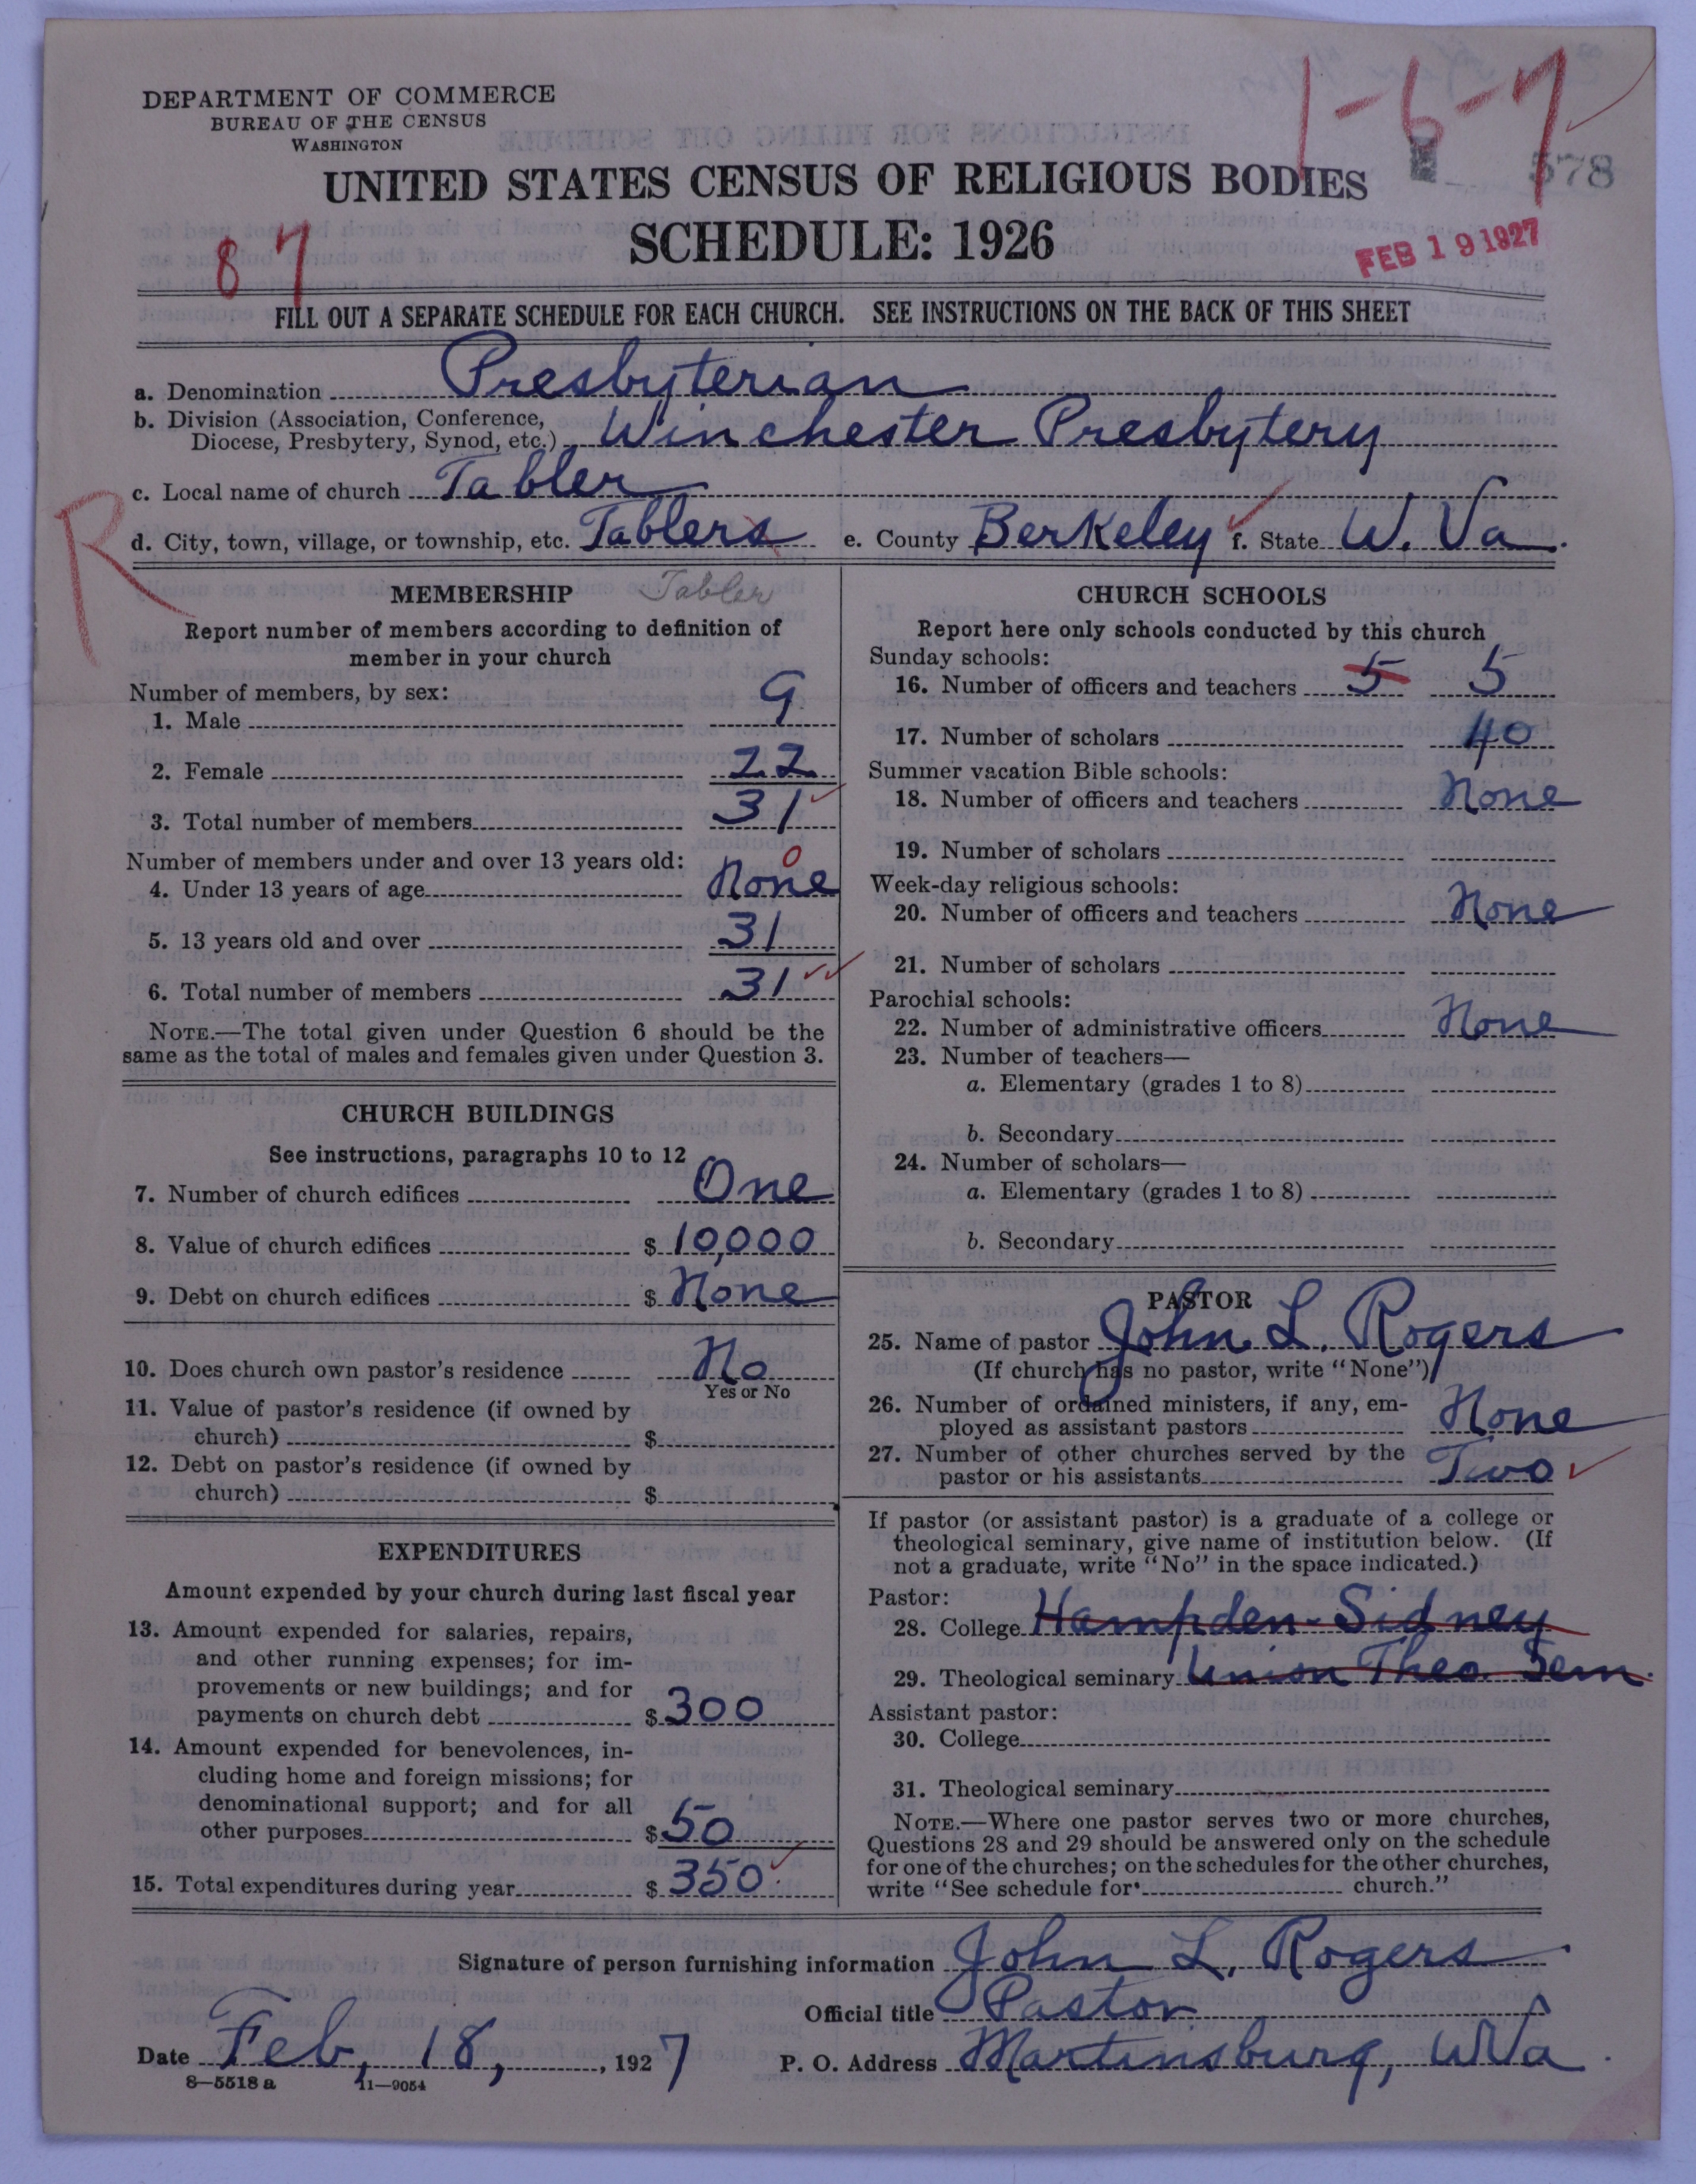 DEPARTMENT OF COMMERCE
BUREAU OF THE CENSUS
WASHINGTON
1-6-7
578
UNITED STATES CENSUS OF RELIGIOUS BODIES
SCHEDULE: 1926
87
FEB 19 1927
FILL OUT A SEPARATE SCHEDULE FOR EACH CHURCH. SEE INSTRUCTIONS ON THE BACK OF THIS SHEET
a. Denomination Presbyterian
b. Division (Association, Conference,
Diocese, Presbytery, Synod, etc.) Winchester Presbytery
c. Local name of church Tabler
R
d. City, town, village, or township, etc. Tablers e. County Berkeley f. State W. Va.
MEMBERSHIP Tabler
Report number of members according to definition of
member in your church
Number of members, by sex:
1. Male 9
2. Female 22
3. Total number of members 31
Number of members under and over 13 years old: 0
4. Under 13 years of age None
5. 13 years old and over 31
6. Total number of members 31
NOTE.—The total given under Question 6 should be the
same as the total of males and females given under Question 3.
CHURCH BUILDINGS
See instructions, paragraphs 10 to 12
7. Number of church edifices One
8. Value of church edifices $ 10,000
9. Debt on church edifices $ None
10. Does church own pastor's residence No
Yes or No
11. Value of pastor's residence (if owned by
church) $
12. Debt on pastor's residence (if owned by
church) $
EXPENDITURES
Amount expended by your church during last fiscal year
13. Amount expended for salaries, repairs,
and other running expenses; for im-
provements or new buildings; and for
payments on church debt $ 300
14. Amount expended for benevolences, in-
cluding home and foreign missions; for
denominational support; and for all
other purposes $ 50
15. Total expenditures during year $ 350
CHURCH SCHOOLS
Report here only schools conducted by this church
Sunday schools:
16. Number of officers and teachers 5 5
17. Number of scholars 40
Summer vacation Bible schools:
18. Number of officers and teachers None
19. Number of scholars
Week-day religious schools:
20. Number of officers and teachers None
21. Number of scholars
Parochial schools:
22. Number of administrative officers None
23. Number of teachers—
a. Elementary (grades 1 to 8)
b. Secondary
24. Number of scholars—
a. Elementary (grades 1 to 8)
b. Secondary
PASTOR
25. Name of pastor John L. Rogers
(If church has no pastor, write "None")
26. Number of ordained ministers, if any, em-
ployed as assistant pastors None
27. Number of other churches served by the
pastor or his assistants Two
If pastor (or assistant pastor) is a graduate of a college or
theological seminary, give name of institution below. (If
not a graduate, write "No" in the space indicated.)
Pastor:
28. College Hampden-Sidney
29. Theological seminary Union Theo. Sem.
Assistant pastor:
30. College
31. Theological seminary
NOTE.—Where one pastor serves two or more churches,
Questions 28 and 29 should be answered only on the schedule
for one of the churches; on the schedules for the other churches,
write "See schedule for church."
Signature of person furnishing information John L. Rogers
Official title Pastor
Date Feb, 18, , 1927 P. O. Address Martinsburg, W Va.
8—5518 a 11—9054